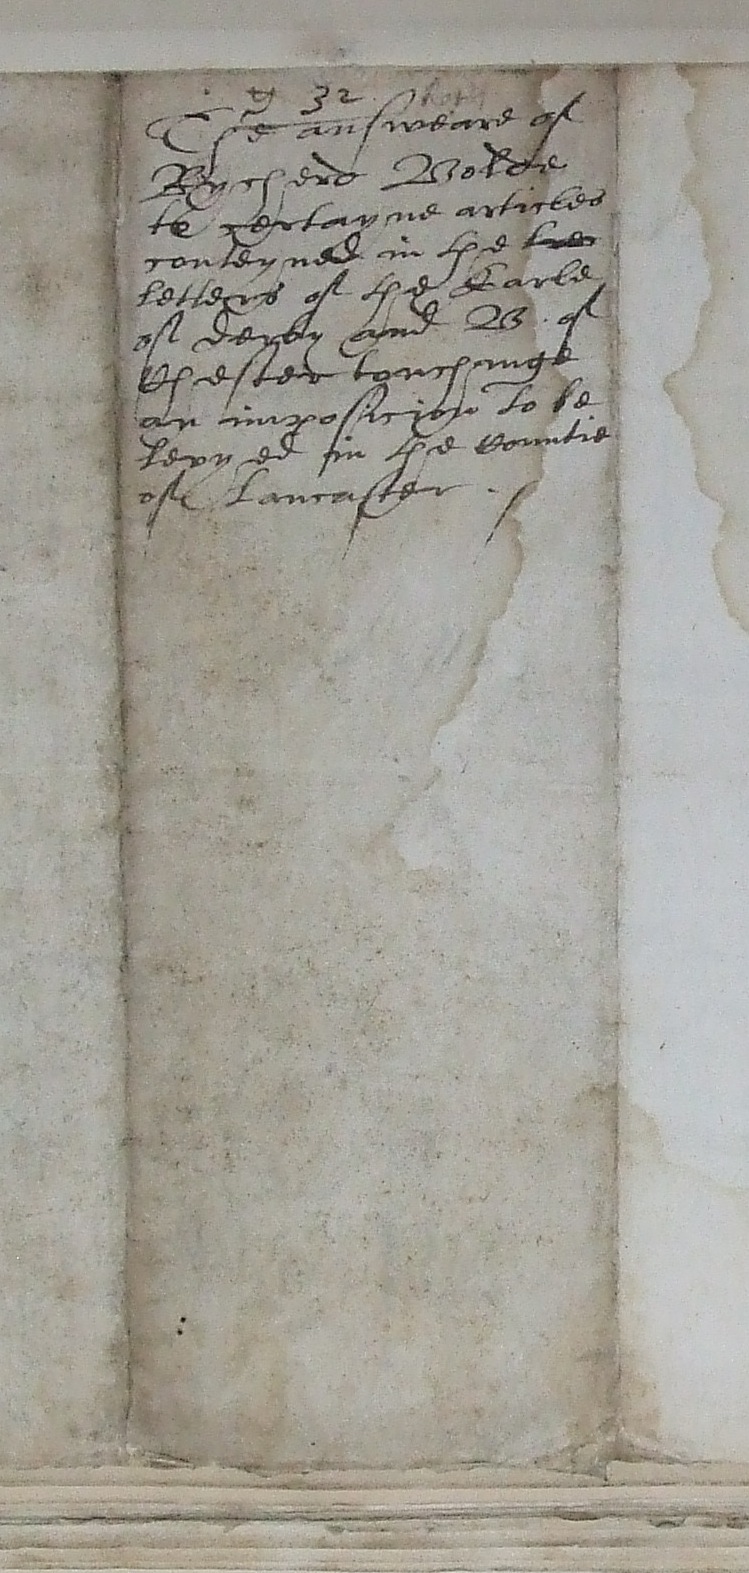 32
The answeare of
Rycherd Bolde
to certayne articles
conteyned in the
letters of the Earle
of derby and B. of
Chester touchinge
an imposicion to be
levyed in the Countie
of Lancaster .